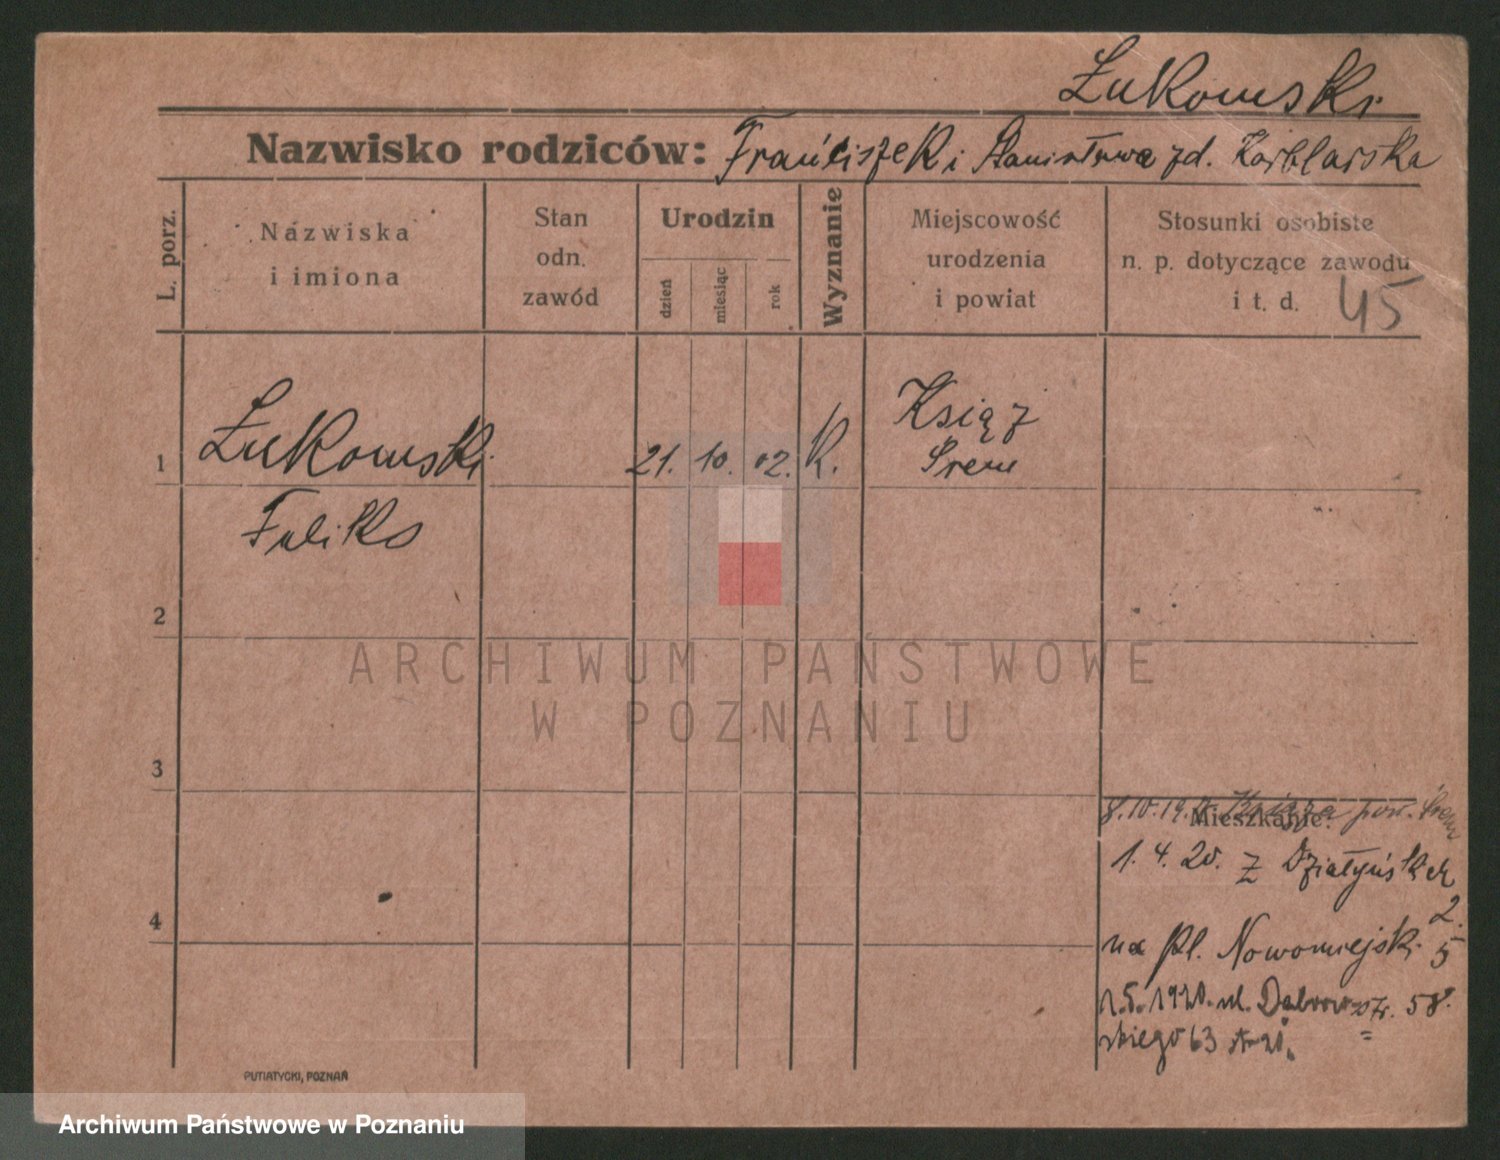 Łukowski
Nazwisko rodziców: Franciszek i Stanisława zd.
L. porz.
Nazwiska
i imiona
Stan
odn.
zawód
Urodzin
dzień
miesiąc
rok
Wyznanie
Miejscowość
urodzenia
i powiat
Stosunki osobiste
n. p. dotyczące zawodu
i t. d. 45
1 Łukowski 21. 10. 02. K. Książ
Śrem
Feliks
2
ARCHIWUM PAŃSTWOWE
W POZNANIU
3
Mieszkanie:
pow. Śrem
1. 4. 20. z Działyńskich
2.
4
na Pl. Nowomiejski 5
1.5.1920. ul. Dąbrow 58.
skiego 63
PUTIATYCKI, POZNAŃ
Archiwum Państwowe w Poznaniu